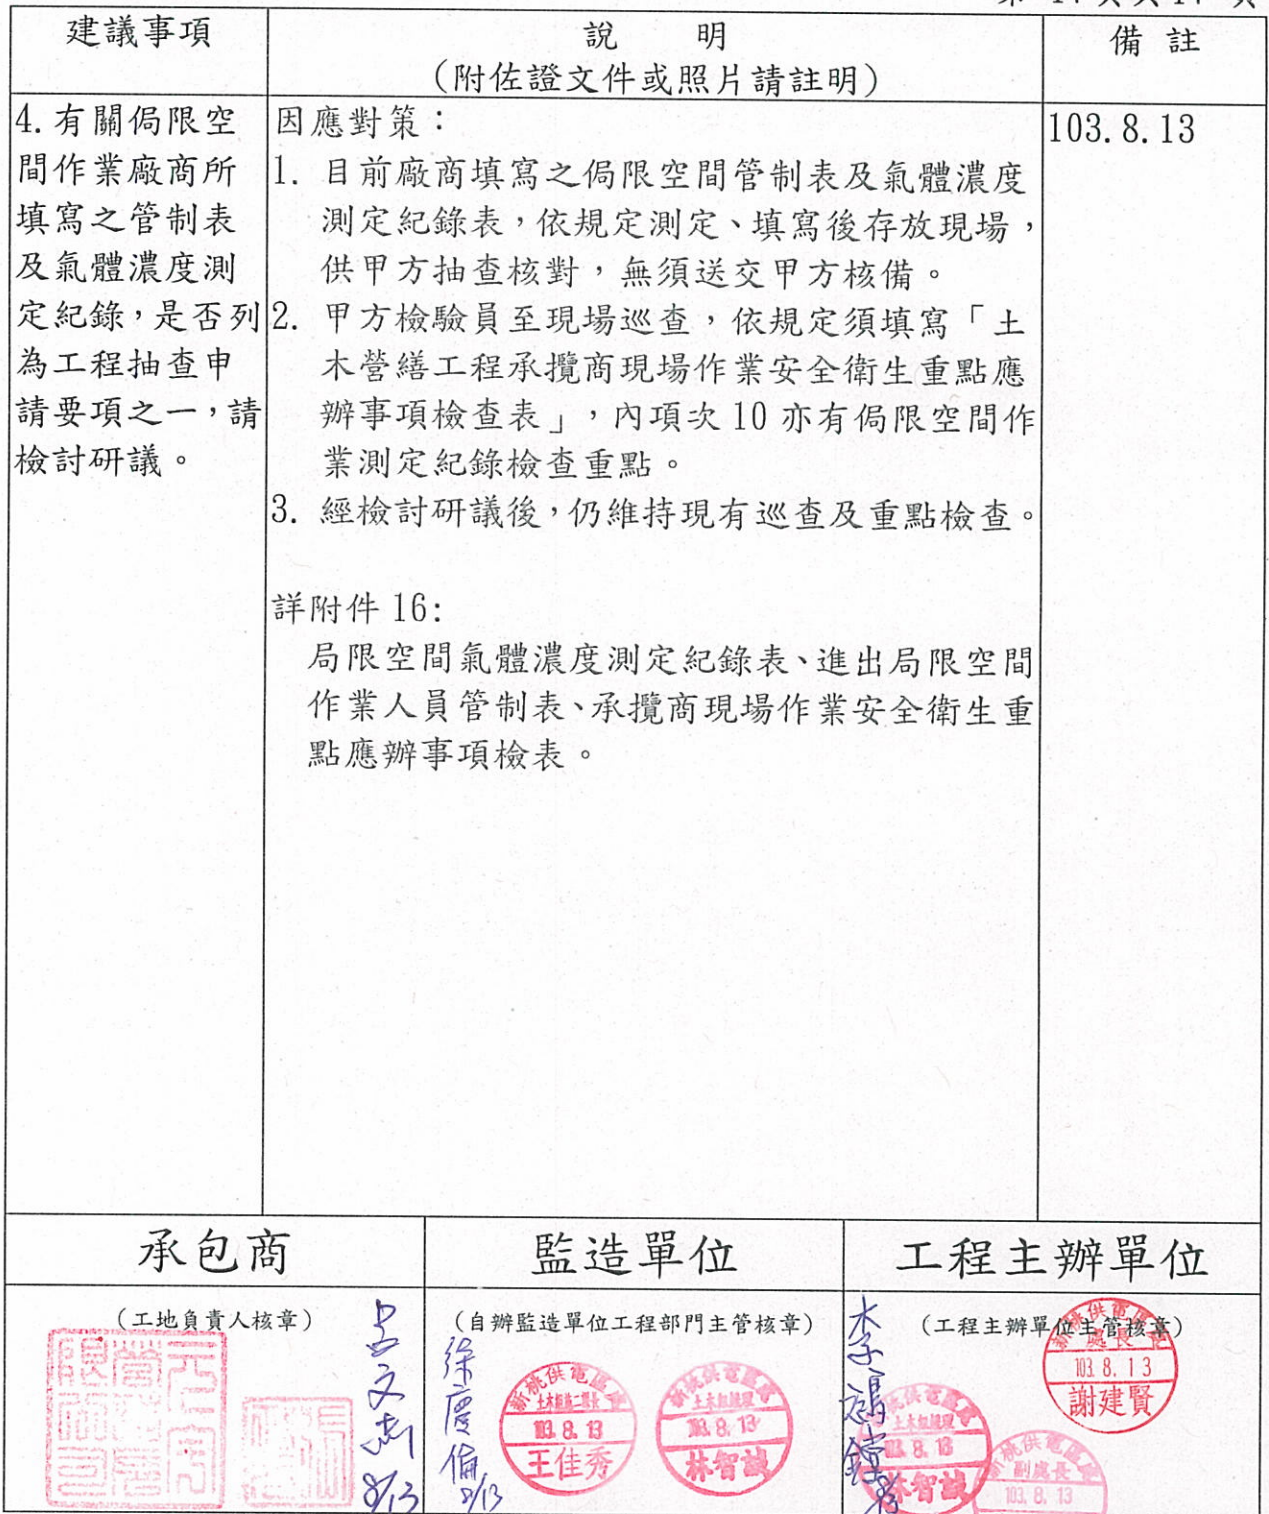 建議事項
說 明
(附佐證文件或照片請註明)
備 註
4.有關侷限空
間作業廠商所
填寫之管制表
及氣體濃度測
定紀錄,是否列
為工程抽查申
請要項之一,請
檢討研議。
因應對策:
1. 目前廠商填寫之侷限空間管制表及氣體濃度
測定紀錄表,依規定測定、填寫後存放現場,
供甲方抽查核對,無須送交甲方核備。
2. 甲方檢驗員至現場巡查,依規定須填寫「土
木營繕工程承攬商現場作業安全衛生重點應
辦事項檢查表」,內項次 10 亦有侷限空間作
業測定紀錄檢查重點。
3. 經檢討研議後,仍維持現有巡查及重點檢查。
詳附件 16:
局限空間氣體濃度測定紀錄表、進出局限空間
作業人員管制表、承攬商現場作業安全衛生重
點應辦事項檢表。
103.8.13
承包商
監造單位
工程主辦單位
(工地負責人核章)
8/13
(自辦監造單位工程部門主管核章)
徐慶倫
8/13
新桃供電區處
103. 8. 13
王佳秀
新桃供電區處
土木組經理
103. 8. 13
林智誠
(工程主辦單位主管核章)
新桃供電區處
處長
103. 8. 13
謝建賢
新桃供電區處
土木組經理
103. 8. 13
林智誠
新桃供電區處
副處長
103. 8. 13